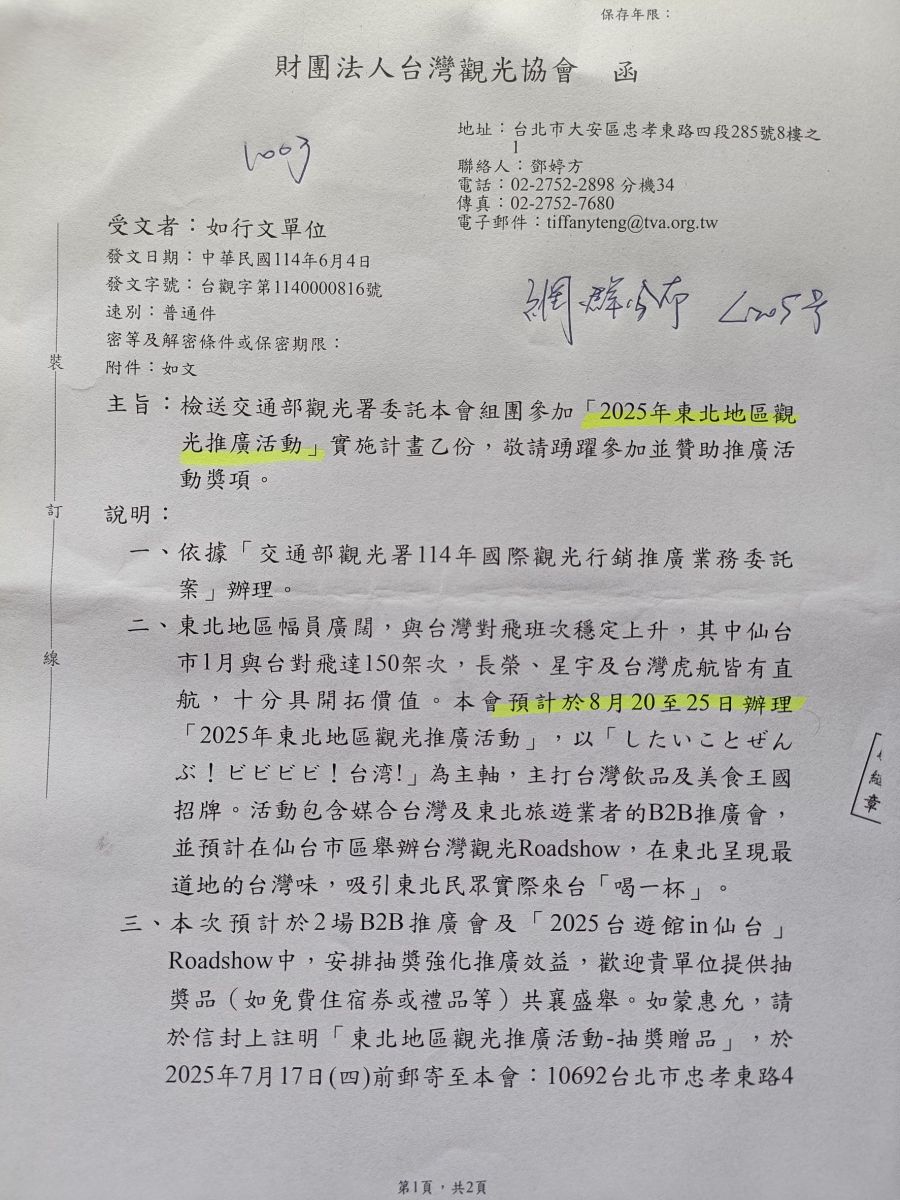 保存年限：
財團法人台灣觀光協會　函
地址：台北市大安區忠孝東路四段285號8樓之
1
聯絡人：鄧婷方
電話：02-2752-2898 分機34
傳真：02-2752-7680
電子郵件：tiffanyteng@tva.org.tw
1003
受文者：如行文單位
發文日期：中華民國114年6月4日
發文字號：台觀字第1140000816號
速別：普通件
密等及解密條件或保密期限：
附件：如文
網群公布
主旨：檢送交通部觀光署委託本會組團參加「2025年東北地區觀
光推廣活動」實施計畫乙份，敬請踴躍參加並贊助推廣活
動獎項。
說明：
一、依據「交通部觀光署114年國際觀光行銷推廣業務委託
案」辦理。
二、東北地區幅員廣闊，與台灣對飛班次穩定上升，其中仙台
市1月與台對飛達150架次，長榮、星宇及台灣虎航皆有直
航，十分具開拓價值。本會預計於8月20至25日辦理
「2025年東北地區觀光推廣活動」，以「したいことぜん
ぶ！ビビビビ！台湾!」為主軸，主打台灣飲品及美食王國
招牌。活動包含媒合台灣及東北旅遊業者的B2B推廣會，
並預計在仙台市區舉辦台灣觀光Roadshow，在東北呈現最
道地的台灣味，吸引東北民眾實際來台「喝一杯」。
三、本次預計於2場B2B推廣會及「2025台遊館in仙台」
Roadshow中，安排抽獎強化推廣效益，歡迎貴單位提供抽
獎品（如免費住宿券或禮品等）共襄盛舉。如蒙惠允，請
於信封上註明「東北地區觀光推廣活動-抽獎贈品」，於
2025年7月17日(四)前郵寄至本會：10692台北市忠孝東路4
裝
訂
線
章
第1頁，共2頁